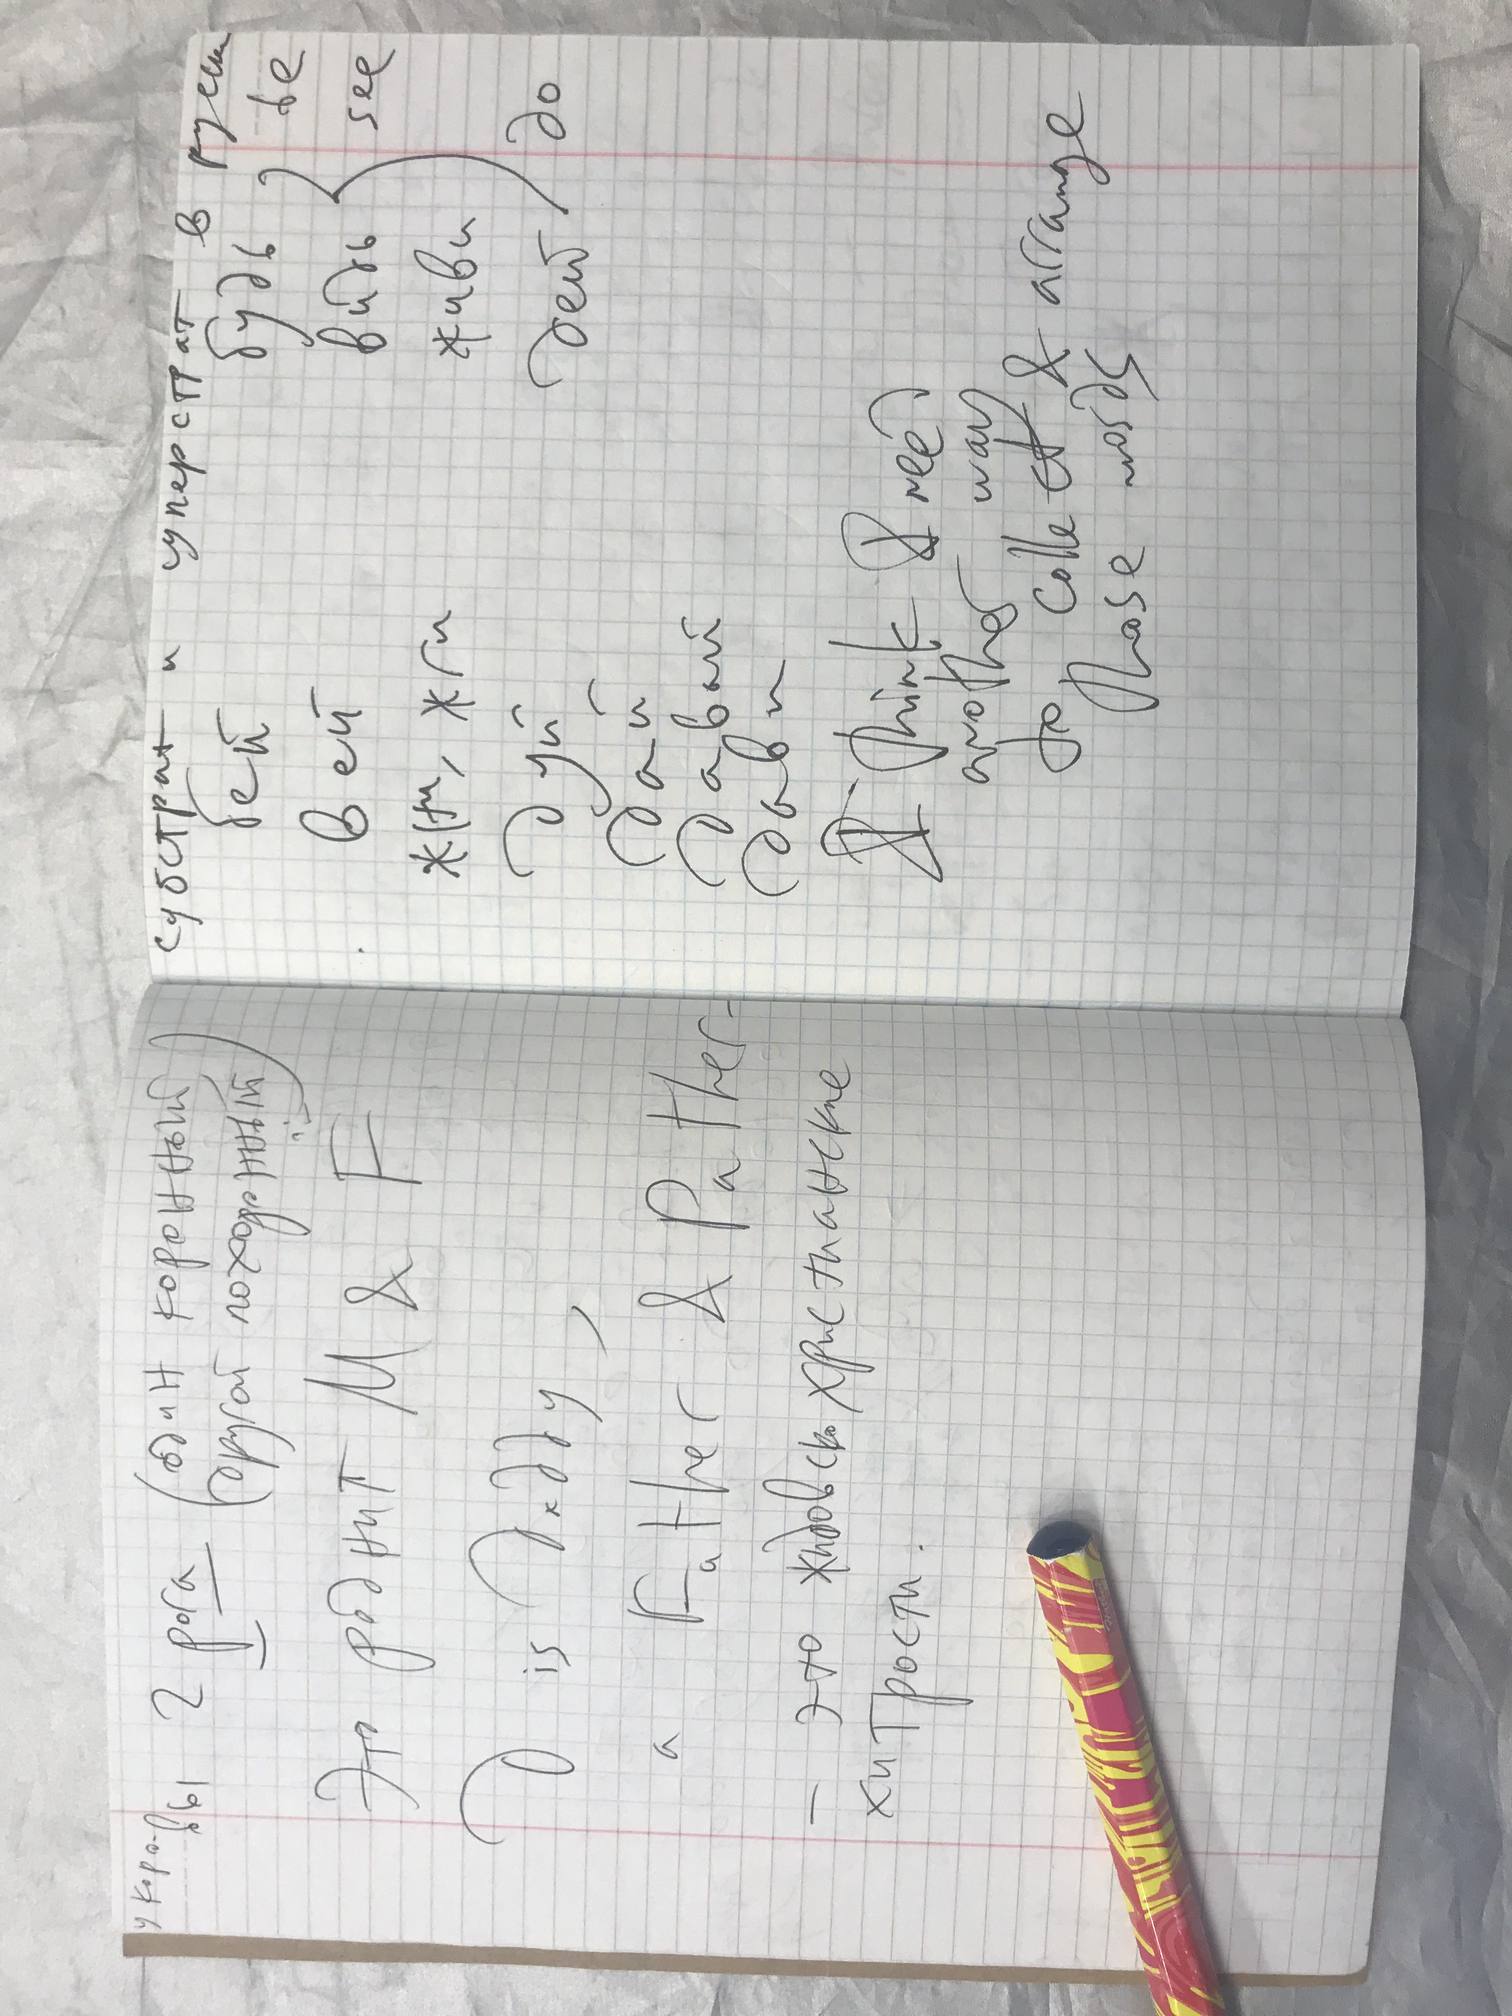 у коро-
вы 2 рога (один коренный
другой похоронный)
Это роднит M & F
D is Дадду,
а Father & Pather-
- это жидовскохристианские
хитрости.
субстрат и суперстрат в русск
бей будь be
вей видь see
жми, жги живи
дуй дей до
дай
давай
дави
I think I need
another way
to collect & arrange
those words